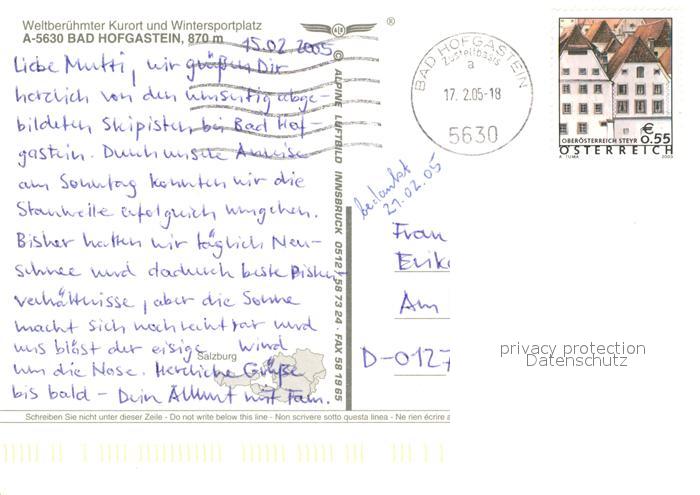 Weltberühmter Kurort und Wintersportplatz
A-5630 BAD HOFGASTEIN, 870 m
®
15.02.2005
Liebe Mutti, wir grüßen Dir
herzlich von den umseitig abge-
bildeten Skipisten bei Bad Hof-
gastein. Durch unsere Anreise
am Sonntag konnten wir die
Stauwelle erfolgreich umgehen.
Bisher hatten wir täglich Neu-
schnee und dadurch beste Pisten-
verhältnisse, aber die Sonne
macht sich noch recht rar und
uns bläst der eisige Wind
um die Nase. Herzliche Grüße
bis bald - Dein mit Fam.
Salzburg
© ALPINE LUFTBILD INNSBRUCK 0512 / 58 73 24 · FAX 58 19 65
BAD HOFGASTEIN
Zustellbasis
a
17. 2.05-18
5630
€0.55
OBERÖSTERREICH STEYR
ÖSTERREICH
A. TUMA 2003
bedankt
21.02.05
Frau
Erika
Am
D-0127
privacy protection
Datenschutz
Schreiben Sie nicht unter dieser Zeile - Do not write below this line - Non scrivere sotto questa linea - Ne rien écrire a